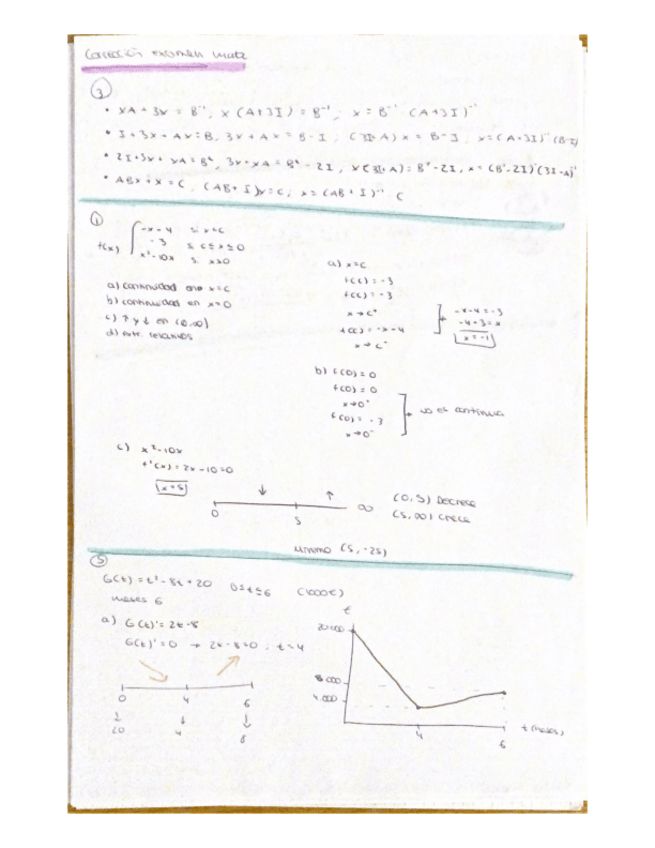 Corrección examen mate
3
• XA + 3X = B⁻¹, X (A+3I) = B⁻¹; X = B⁻¹ (A+3I)⁻¹
• I + 3X + AX = B, 3X + AX = B - I, (3I+A) X = B - I, X = (A+3I)⁻¹ (B-I)
• 2I + 3X + XA = B², 3X + XA = B² - 2I, X(3I+A) = B² - 2I, X = (B²-2I) (3I+A)⁻¹
• ABX + X = C, (AB + I)X = C, X = (AB + I)⁻¹ C
1
f(x) { -x-4 si x<c
-3 si c≤x≤0
x²-10x si x>0
a) continuidad en x=c
b) continuidad en x=0
c) ↑ y ↓ en (0,∞)
d) extr. relativos
a) x=c
f(c) = -3
f(c) = -3
x→c⁺
f(c) = -x-4
x→c⁻
-x-4 = -3
-4+3 = x
x = -1
b) f(0) = 0
f(0) = 0
x→0⁺
f(0) = -3
x→0⁻
no es continua
c) x²-10x
f'(x) = 2x-10 = 0
x=5
↓ ↑
0 5 ∞
(0,5) Decrece
(5,∞) Crece
mínimo (5,-25)
5
G(t) = t²-8t+20 0≤t≤6 (1000€)
meses 6
a) G(t)' = 2t-8
G(t)' = 0 → 2t-8=0; t=4
0 4 6
↓ ↓ ↓
20 4 8
€
20000
8.000
4.000
4 6
t (meses)